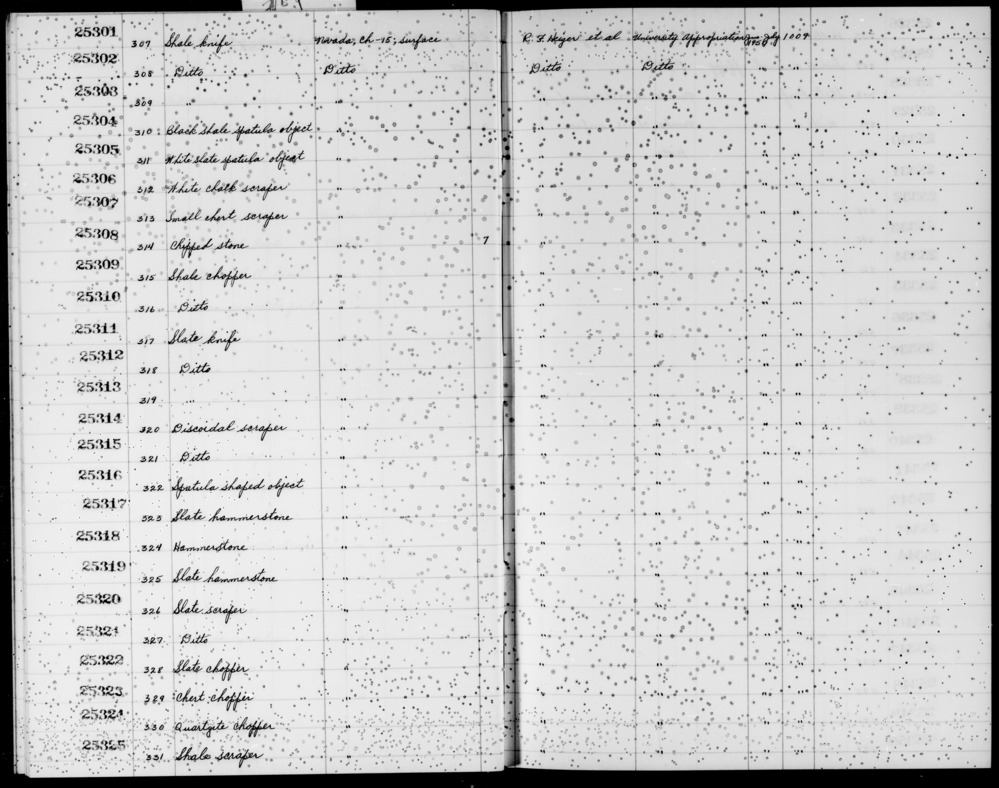 25301 307 Shale knife Nevada, Ch-15; surface R. F. Heizer et al University Appropriation 1950 July 1009
25302 308 Ditto Ditto Ditto Ditto " "
25303 309 " " " " " "
25304 310 Black shale spatula object " " " " "
25305 311 White slate spatula object " " " " "
25306 312 White chalk scraper " " " " "
25307 313 Small chert scraper " " " " "
25308 314 Chipped stone " 7 " " " "
25309 315 Shale chopper " " " " "
25310 316 Ditto " " " " "
25311 317 Slate knife " " " " "
25312 318 Ditto " " " " "
25313 319 " " " " " "
25314 320 Discoidal scraper " " " " "
25315 321 Ditto " " " " "
25316 322 Spatula shaped object " " " " "
25317 323 Slate hammerstone " " " " "
25318 324 Hammerstone " " " " "
25319 325 Slate hammerstone " " " " "
25320 326 Slate scraper " " " " "
25321 327 Ditto " " " " "
25322 328 Slate chopper " " " " "
25323 329 Chert chopper " " " " "
25324 330 Quartzite chopper " " " " "
25325 331 Shale scraper " " " " "